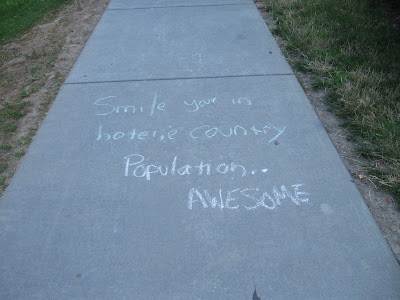 Smile your in
hoterie country
Population..
AWESOME